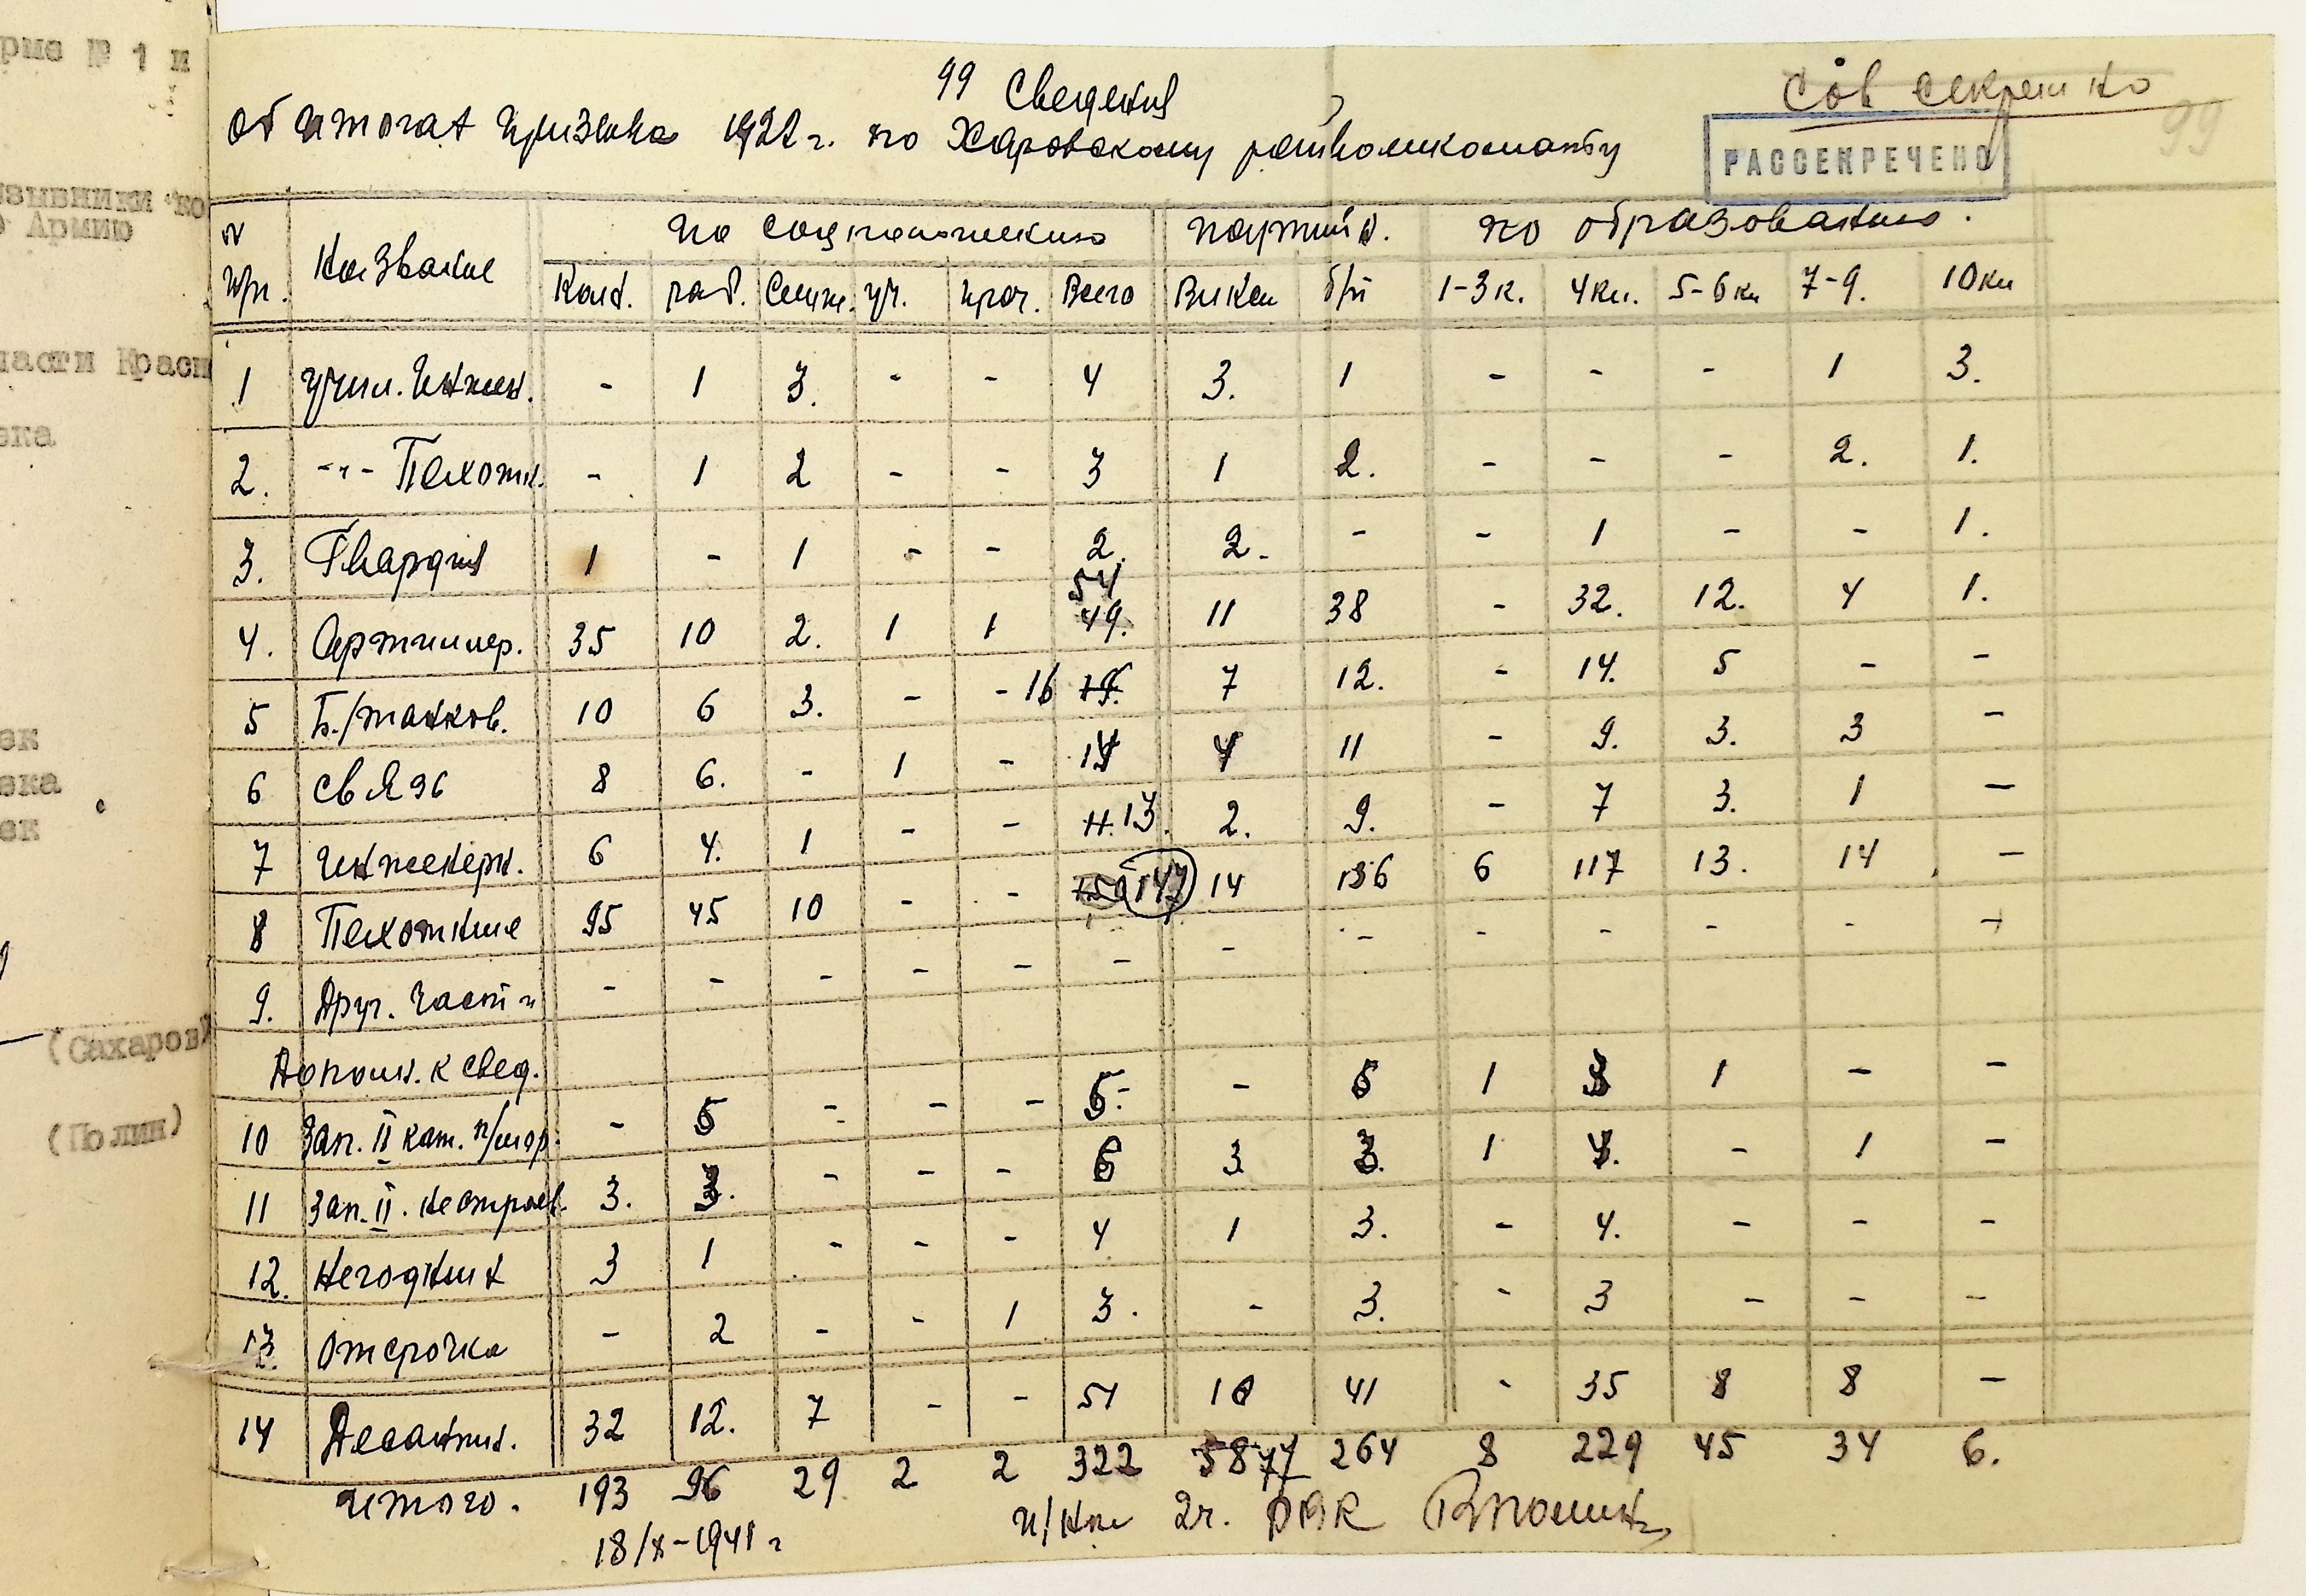 рме № 1 и
зывники по
Армию
части Красн
ека
ек
ека
ек
(Сахаров)
(Полин)
99 Сведения
Сов секретно
99
РАССЕКРЕЧЕНО
об итогах призыва 192 г. по Харовскому райвоенкомату
№ п/п. Название по соцположению партийн. по образованию.
Колх. раб. Служ. уч. проч. Всего Влксм б/п 1-3 к. 4 кл. 5-6 кл 7-9. 10 кл
1 училищ. Инжен. - 1 3. - - 4 3. 1 - - - 1 3.
2. -"- Пехотн. - 1 2 - - 3 1 2. - - - 2. 1.
3. Гвардия 1 - 1 - - 2. 2. - - 1 - - 1.
4. Артиллер. 35 10 2. 1 1 54 49. 11 38 - 32. 12. 4 1.
5 Б./танков. 10 6 3. - - 16 19. 7 12. - 14. 5 - -
6 Связь 8 6. - 1 - 15 4 11 - 9. 3. 3 -
7 Инженерн. 6 4. 1 - - 11. 13. 2. 9. - 7 3. 1 -
8 Пехотные 95 45 10 - - 150 147 14 136 6 117 13. 14 -
9. Друг. части - - - - - - - - - - - - -
Дополн. к свед.
10 Зап. II кат. - 5 - - - 5. - 5 1 3 1 - -
11 Зап. II. нестроев. 3. 3. - - - 6 3 3. 1 4. - 1 -
12. Негодных 3 1 - - - 4 1 3. - 4. - - -
13. Отсрочка - 2 - - 1 3. - 3. - 3 - - -
14 Десантн. 32 12. 7 - - 51 10 41 - 35 8 8 -
Итого. 193 96 29 2 2 322 58 77 264 8 229 45 34 6.
18/X-1941 г
2ч. РВК